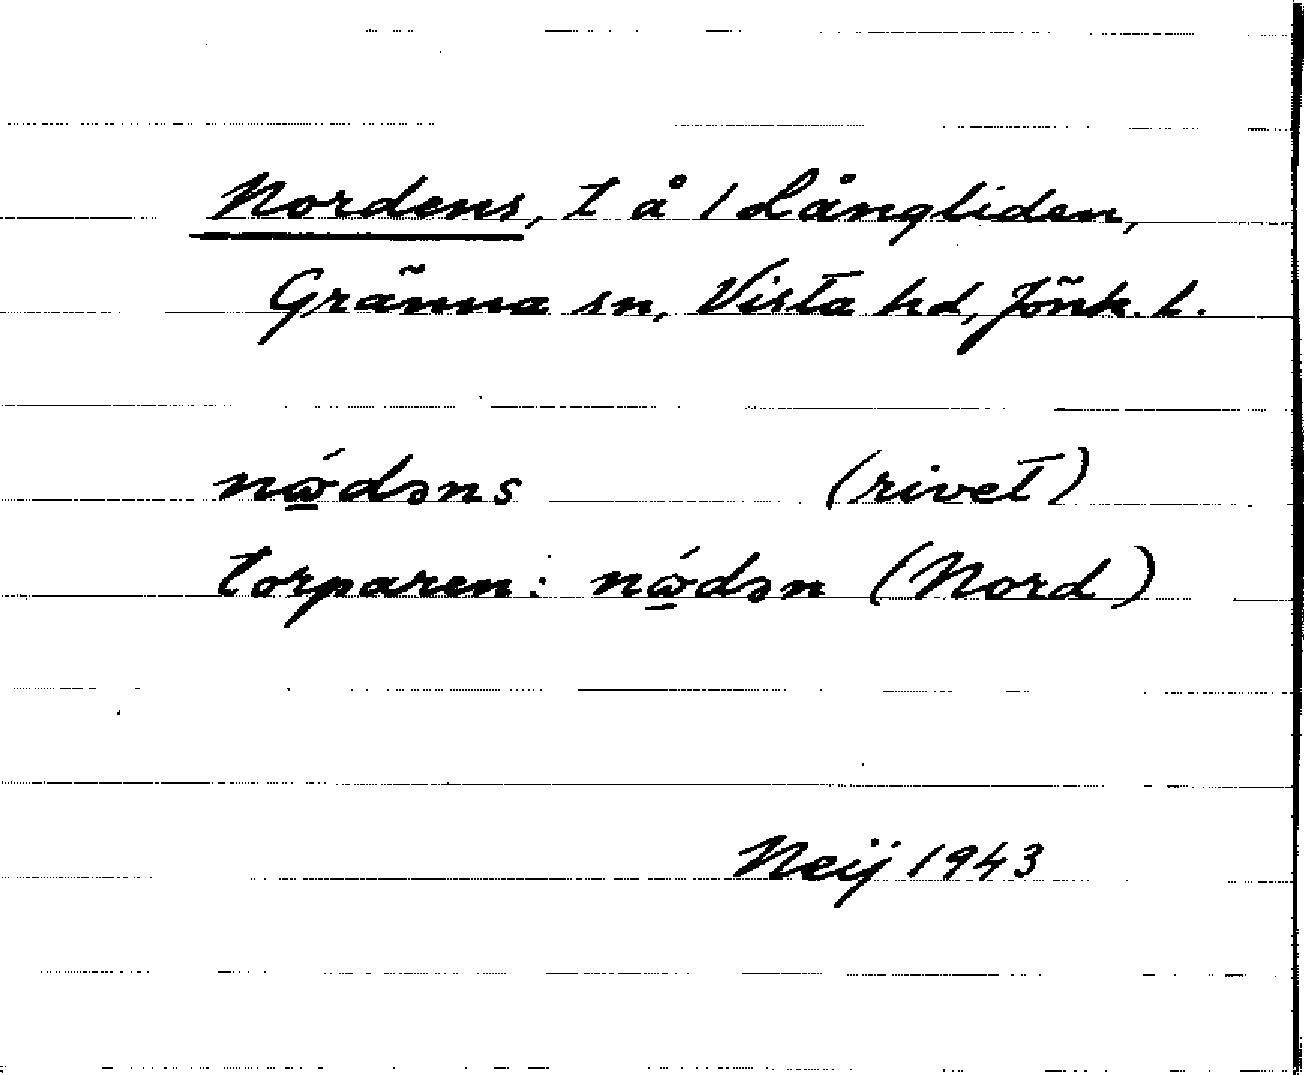 Nordens, t å 1 Långliden,
Gränna sn, Vista hd, Jönk. l.
nώdəns (rivet)
torparen: nώdən (Nord)
Neij 1943